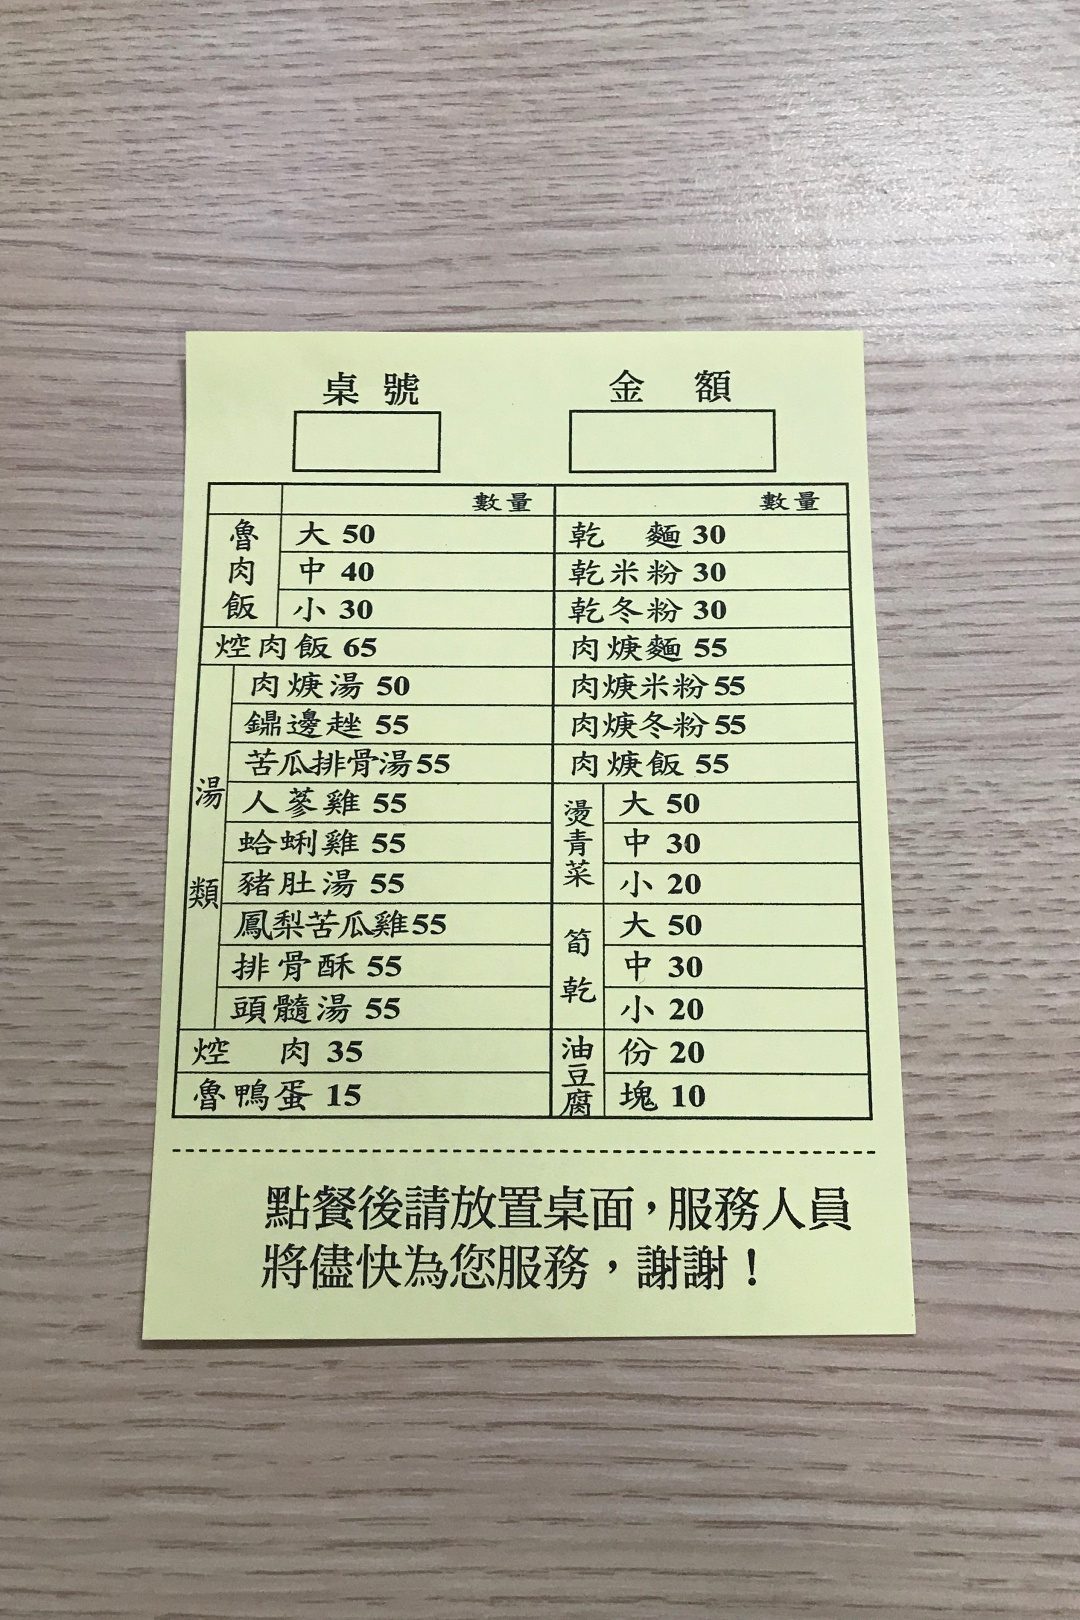 桌號 金額
數量 數量
魯肉飯 大 50
中 40
小 30
焢肉飯 65
湯類 肉焿湯 50
鐤邊趖 55
苦瓜排骨湯55
人蔘雞 55
蛤蜊雞 55
豬肚湯 55
鳳梨苦瓜雞55
排骨酥 55
頭髓湯 55
焢肉 35
魯鴨蛋 15
乾麵 30
乾米粉 30
乾冬粉 30
肉焿麵 55
肉焿米粉55
肉焿冬粉55
肉焿飯 55
燙青菜 大 50
中 30
小 20
筍乾 大 50
中 30
小 20
油豆腐 份 20
塊 10
點餐後請放置桌面，服務人員
將儘快為您服務，謝謝！